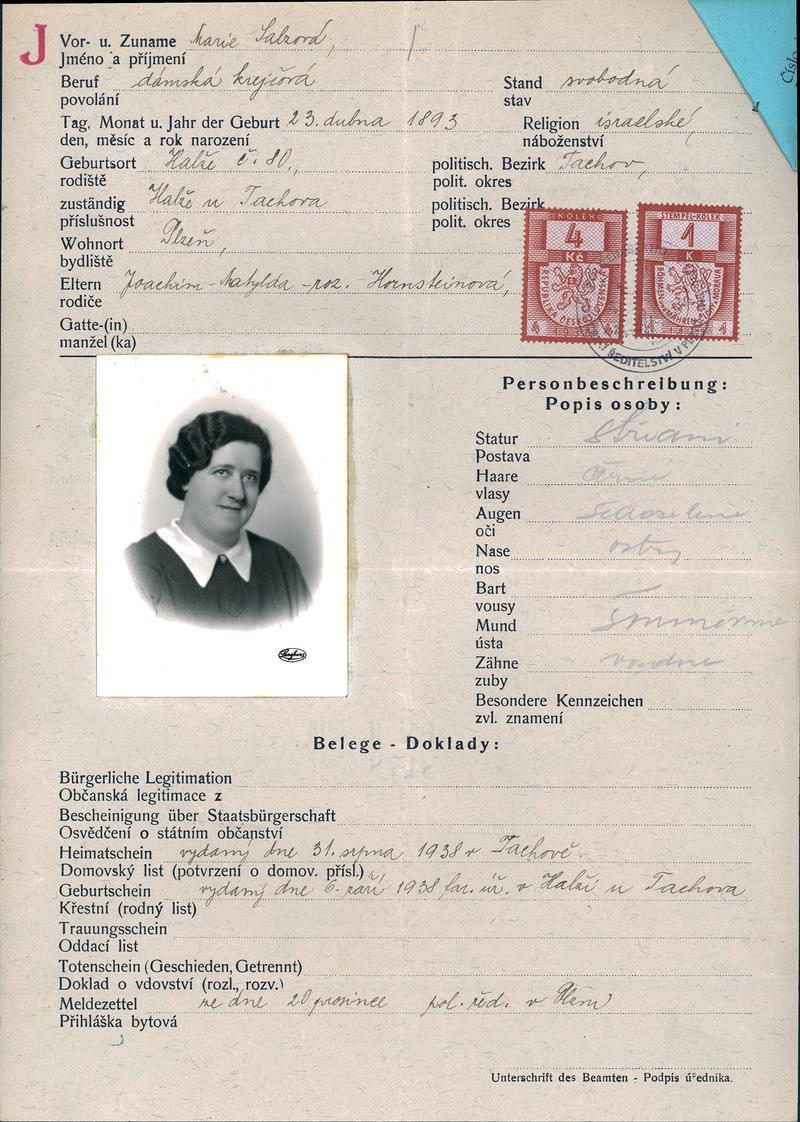 J
Vor- u. Zuname Marie Salzová,
Jméno a příjmení
Beruf dámská krejčová Stand svobodná
povolání stav
Tag, Monat u. Jahr der Geburt 23. dubna 1893 Religion israelské,
den, měsíc a rok narození náboženství
Geburtsort Halže č. 80., politisch. Bezirk Tachov,
rodiště polit. okres
zuständig Halže u Tachova politisch. Bezirk
příslušnost polit. okres
Wohnort Plzeň,
bydliště
Eltern Joachim - Matylda - roz. Hornsteinová,
rodiče
Gatte-(in)
manžel (ka)
Číslo
KOLEK
4
Kč
REPUBLIKA ČESKOSLOVENSKÁ
4 4
STEMPEL-KOLEK
1
K
BÖHMEN u. MÄHREN ČECHY a MORAVA
1 1
ŘEDITELSTVÍ V
Personbeschreibung:
Popis osoby:
Statur
Postava
Haare černé
vlasy
Augen šedozelené
oči
Nase ostrý
nos
Bart
vousy
Mund souměrné
ústa
Zähne vadné
zuby
Besondere Kennzeichen
zvl. znamení
Belege - Doklady:
Bürgerliche Legitimation
Občanská legitimace z
Bescheinigung über Staatsbürgerschaft
Osvědčení o státním občanství
Heimatschein vydaný dne 31. srpna 1938 v Tachově.
Domovský list (potvrzení o domov. přísl.)
Geburtschein vydaný dne 6. září 1938 far. úř. v Halži u Tachova
Křestní (rodný list)
Trauungsschein
Oddací list
Totenschein (Geschieden, Getrennt)
Doklad o vdovství (rozl., rozv.)
Meldezettel ze dne 20 prosince pol. řed. v Plzni
Přihláška bytová
Unterschrift des Beamten - Podpis úředníka.